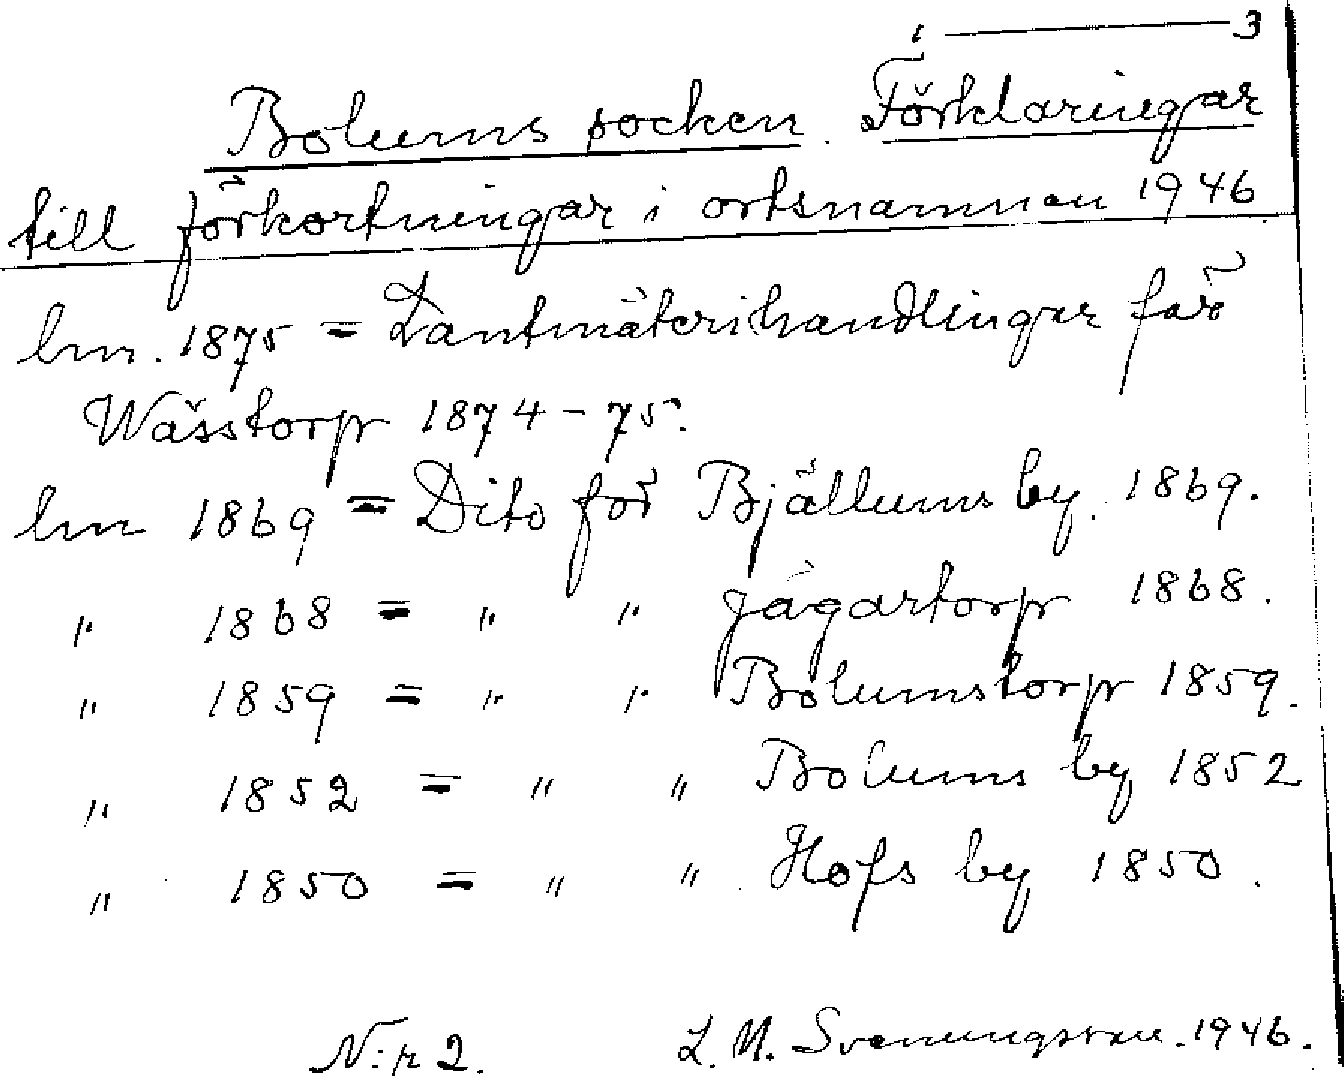 1 — 3
Bolums socken. Förklaringar
till förkortningar i ortsnamnen 1946
lm. 1875 = Lantmäterihandlingar för
Wässtorp 1874-75.
lm 1869 = Dito för Bjällums by. 1869.
" 1868 = " " Jägartorp 1868.
" 1859 = " " Bolumstorp 1859.
" 1852 = " " Bolums by 1852
" 1850 = " " Hofs by 1850.
N:r 2. L. M. Svenungsson. 1946.